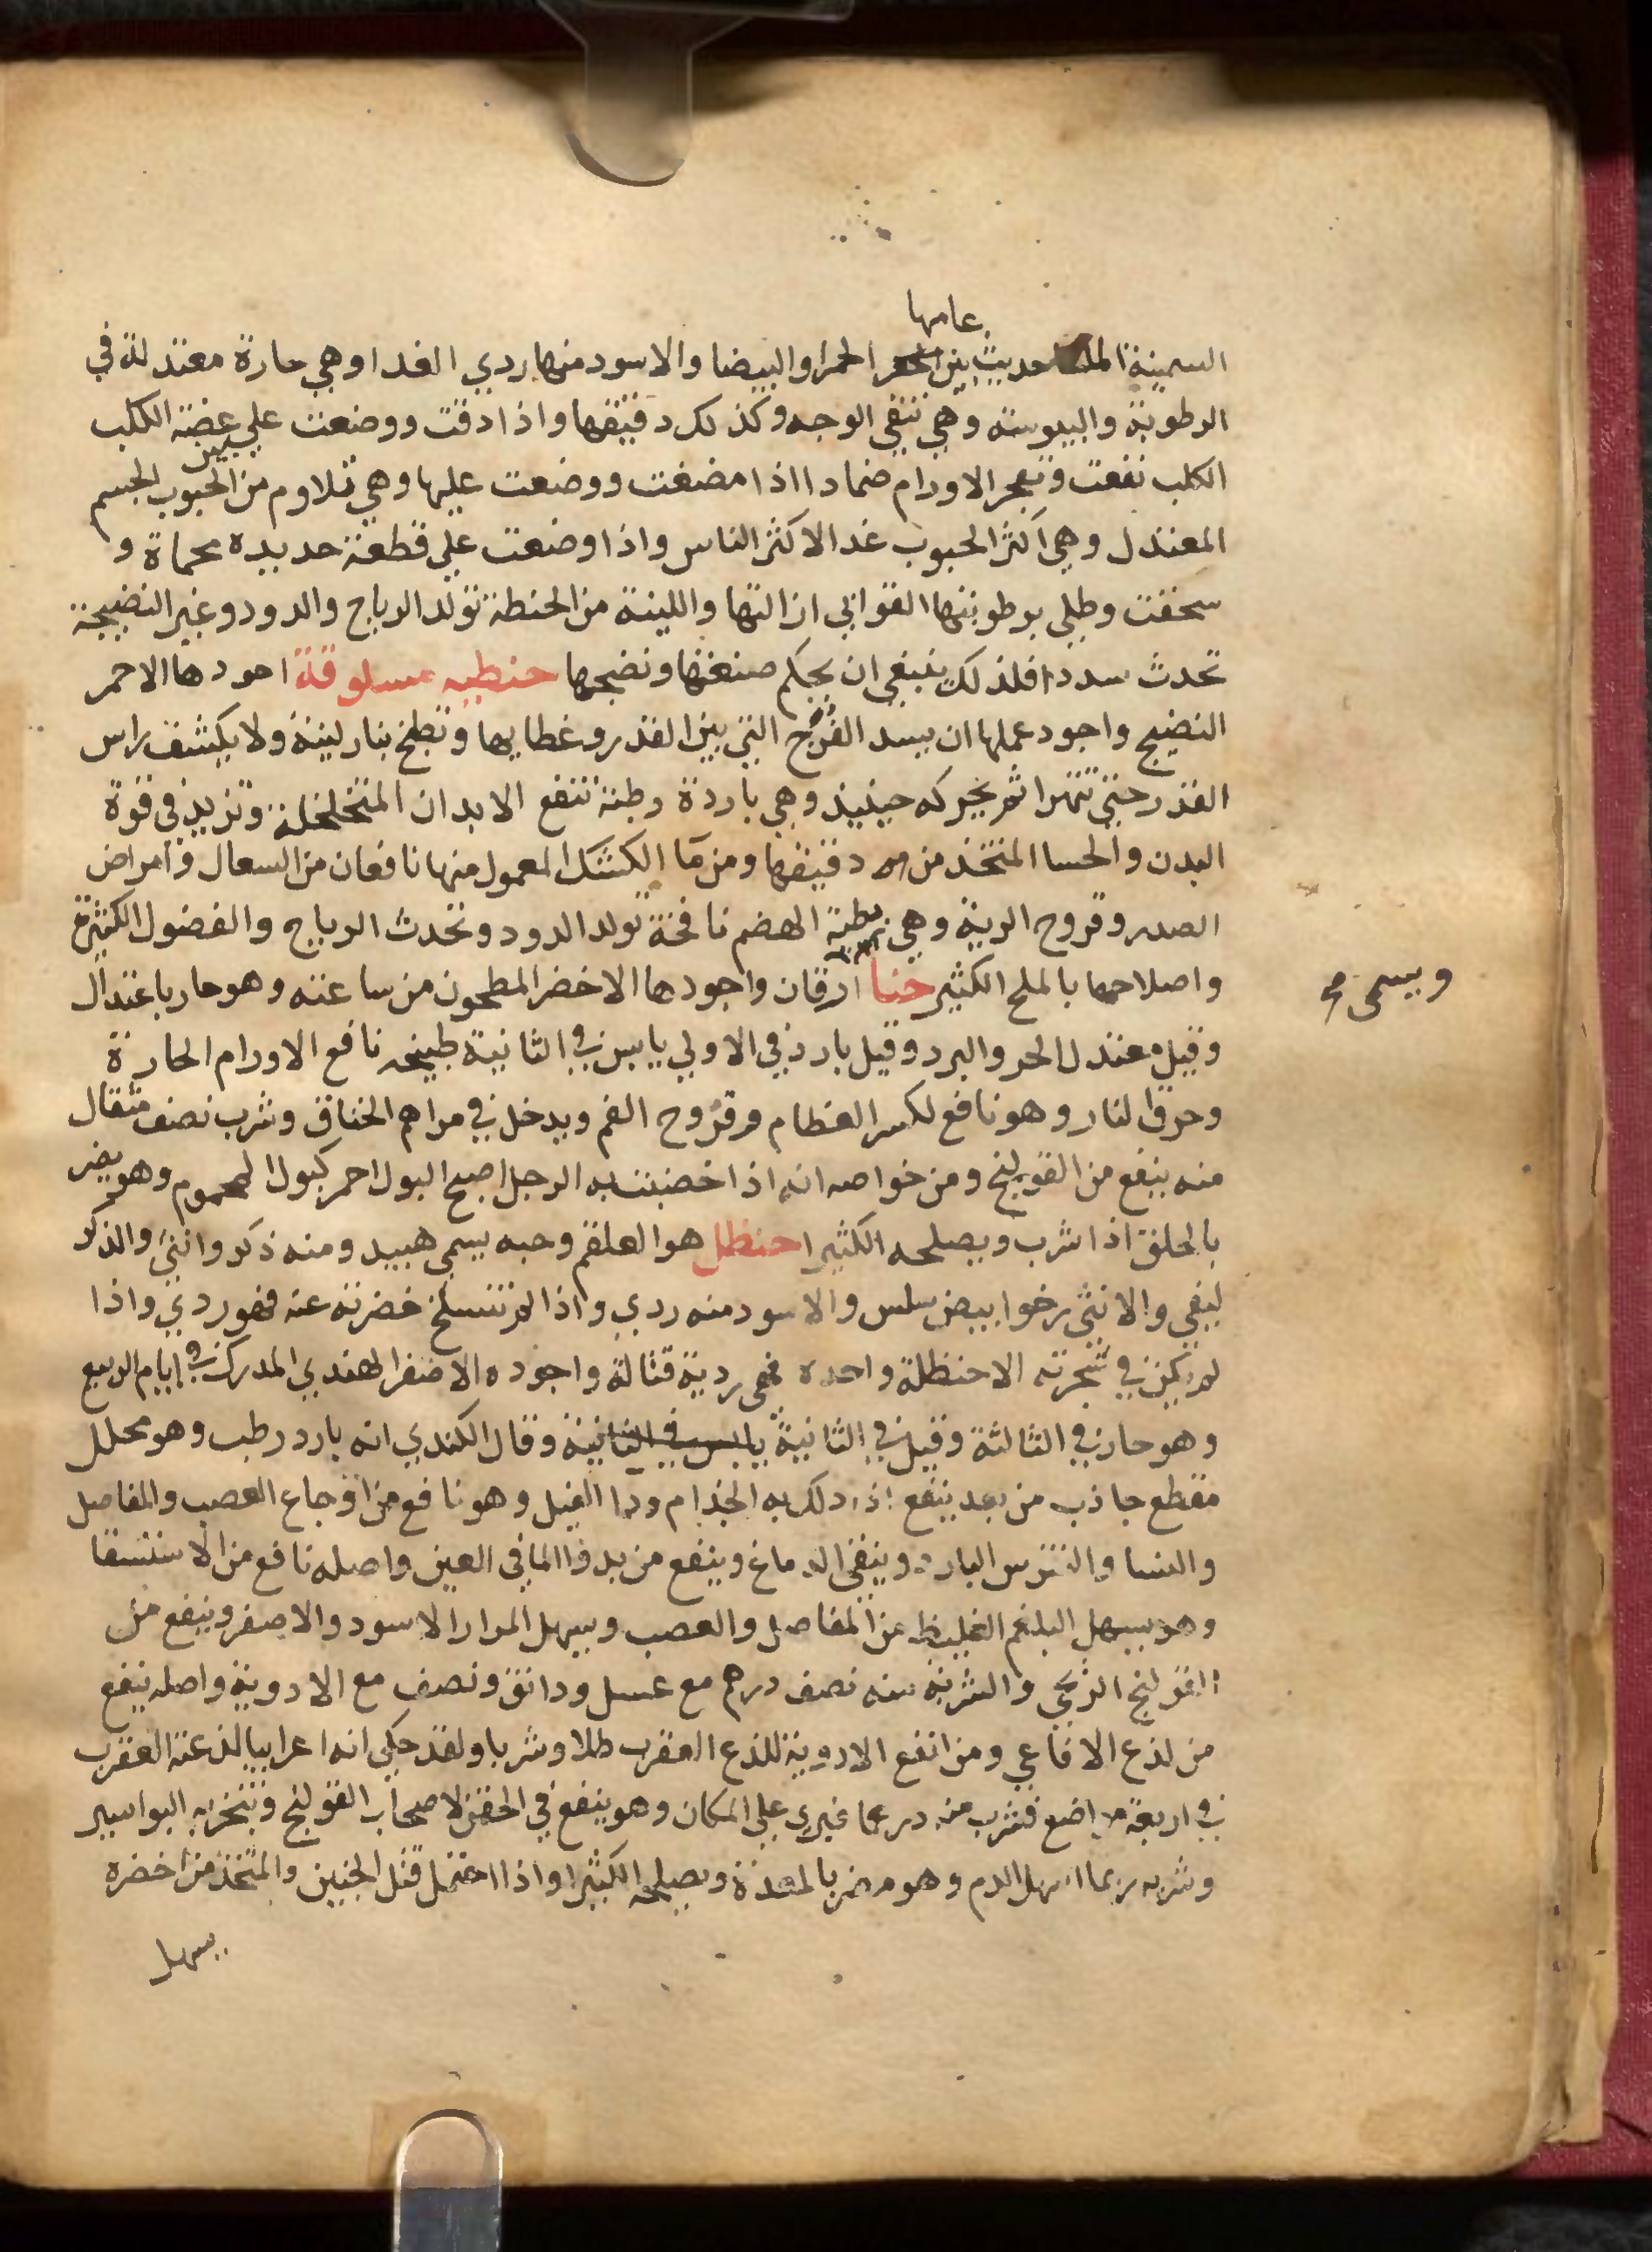 عامها
السمينة الملسا حديث بين الحمرا والبيضا والاسود منها ردي الغدا وهي حارة معتدلة في
الرطوبة واليبوسة وهي تنقي الوجه وكذلك دقيقها واذا دقت ووضعت علي عضة الكلب
الكلب نفعت وتفجر الاورام ضمادا اذا مضغت ووضعت عليها وهي تلاوم من الحبوب الجسم
المعتدل وهي اكثر الحبوب غدا لاكثر الناس واذا وضعت علي قطعة حديده محماة و
سحقت وطلي برطوبتها القوابي ازالتها واللينة من الحنطة تولد الرياح والدود وغير النضيجة
تحدث سددا فلذلك ينبغي ان يحكم صنعتها ونضجها حنطيه مسلوقة اجودها الاحمر
النضيج واجود عملها ان يسد الفُرَج التي بين القدر وغطايها وتطبخ بنار لينة ولا يكشف راس
القدر حتي تتهرا ثم يحركه حينيذ وهي باردة رطبة تنفع الابدان المتخلخلة وتزيد في قوة
البدن والحسا المتخذ من دقيقها ومن ما الكشك المعمول منها نافعان من السعال وامراض
الصدر وقروح الرية وهي بطية الهضم نافخة تولد الدود وتحدث الرياح والفضول الكثيرة
واصلاحها بالملح الكثير حنا ارقان واجودها الاخضر المطحون من ساعته وهو حار باعتدال
ويسمى
وقيل معتدل الحر والبرد وقيل بارد في الاولي يابس في الثانية طبيخه نافع الاورام الحارة
وحرق النار وهو نافع لكسر العظام وقروح الفم ويدخل في مراهم الخناق وشرب نصف مثقال
منه ينفع من القولنج ومن خواصه انه اذا خضبت به الرجل اصبح البول احمر كبول المحموم وهو يضر
بالحلق اذا شرب ويصلحه الكثيرا حنظل هو العلقم وحبه يسمي هبيد ومنه ذكر وانثي والذكر
ليفي والانثي رخو ابيض سلس والاسود منه ردي واذا لم تنسلخ خضرته عنه فهو ردي واذا
لم يكن في شجرته الا حنظلة واحده فهي ردية قتالة واجوده الاصفر الهندي المدرك في ايام الربيع
وهو حار في الثالثة وقيل في الثانية يابس في الثانية وقال الكندي انه بارد رطب وهو محلل
مقطع جاذب من بعد ينفع اذا دلك به الجذام ودا الفيل وهو نافع من اوجاع العصب والمفاصل
والنسا والنقرس البارد وينقي الدماغ وينفع من بدو الما في العين واصله نافع من الاستسقا
وهو يسهل البلغم الغليظ من المفاصل والعصب ويسهل المرار الاسود والاصفر وينفع من
القولنج الريحي والشربه منه نصف درهم مع عسل ودانق ونصف مع الادوية واصله ينفع
من لذع الافاعي ومن انفع الادوية للذع العقرب طلا وشربا ولقد حكي انه اعرابيا لذعته العقرب
في اربعة مواضع فشرب منه درهما فبري علي المكان وهو ينفع في الحقن لاصحاب القولنج وتبخر به البواسير
وشربه ربما اسهل الدم وهو مضر بالمعدة ويصلحه الكثيرا واذا احتمل قتل الجنين والمتخذ من اخضره
يسهل